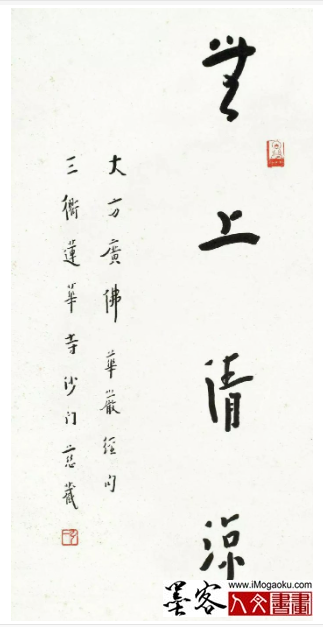 無上清涼
大方廣佛華嚴經句
三衢蓮華寺沙門
墨客
www.iMogaoku.com
人文書畫